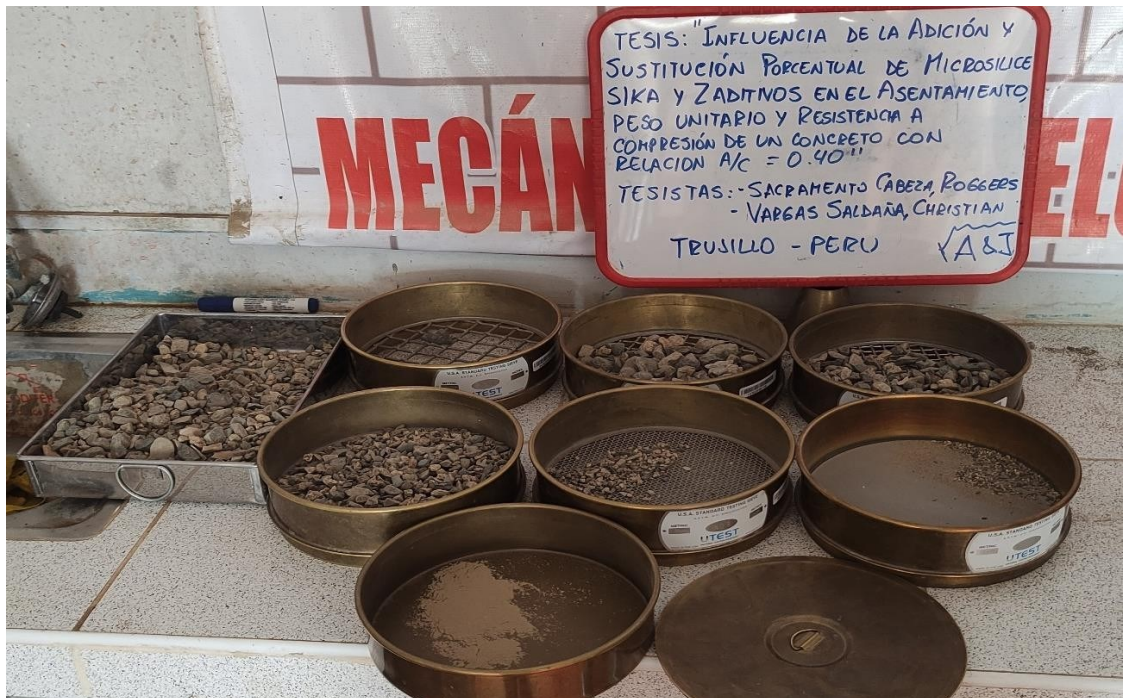 TESIS: "INFLUENCIA DE LA ADICIÓN Y
SUSTITUCIÓN PORCENTUAL DE MICROSILICE
SIKA Y ZADITIVOS EN EL ASENTAMIENTO,
PESO UNITARIO Y RESISTENCIA A
COMPRESIÓN DE UN CONCRETO CON
RELACION A/C = 0.40"
TESISTAS: - SACRAMENTO CABEZA, ROGGERS
- VARGAS SALDAÑA, CHRISTIAN
TRUJILLO - PERU
A&J
MECÁN
EL
U.S.A. STANDARD TESTING SIEVE
U.S.A. STANDARD TESTING
UTEST
U.S.A. STANDARD TESTING
UTEST